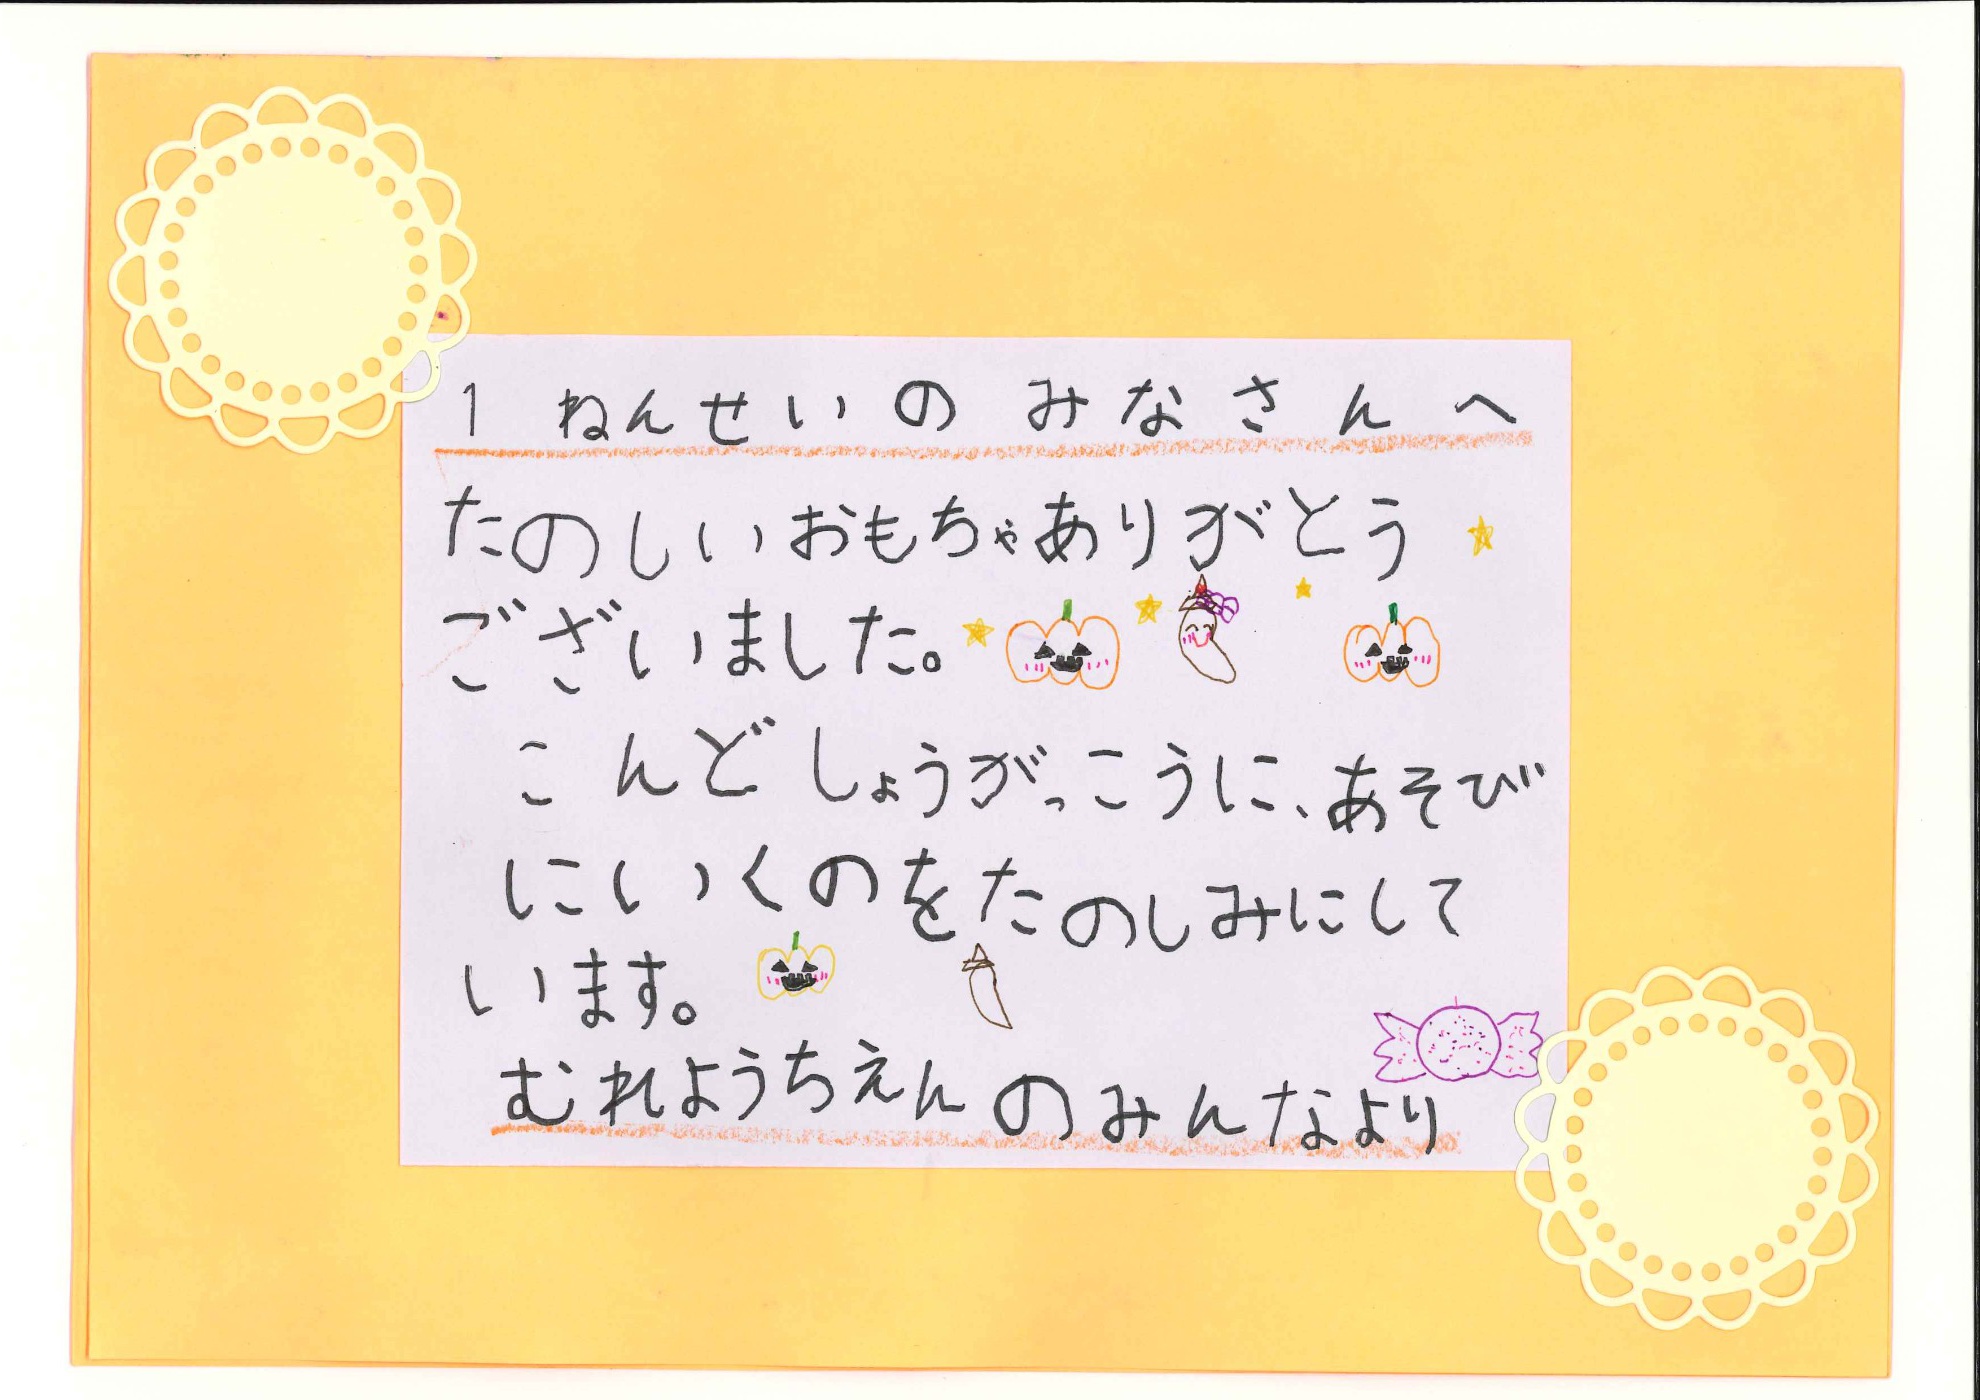 1 ねんせいの みなさんへ
たのしいおもちゃありがとう
ございました。
こんど しょうがっこうに、あそび
にいくのをたのしみにして
います。
むれようちえんのみんなより